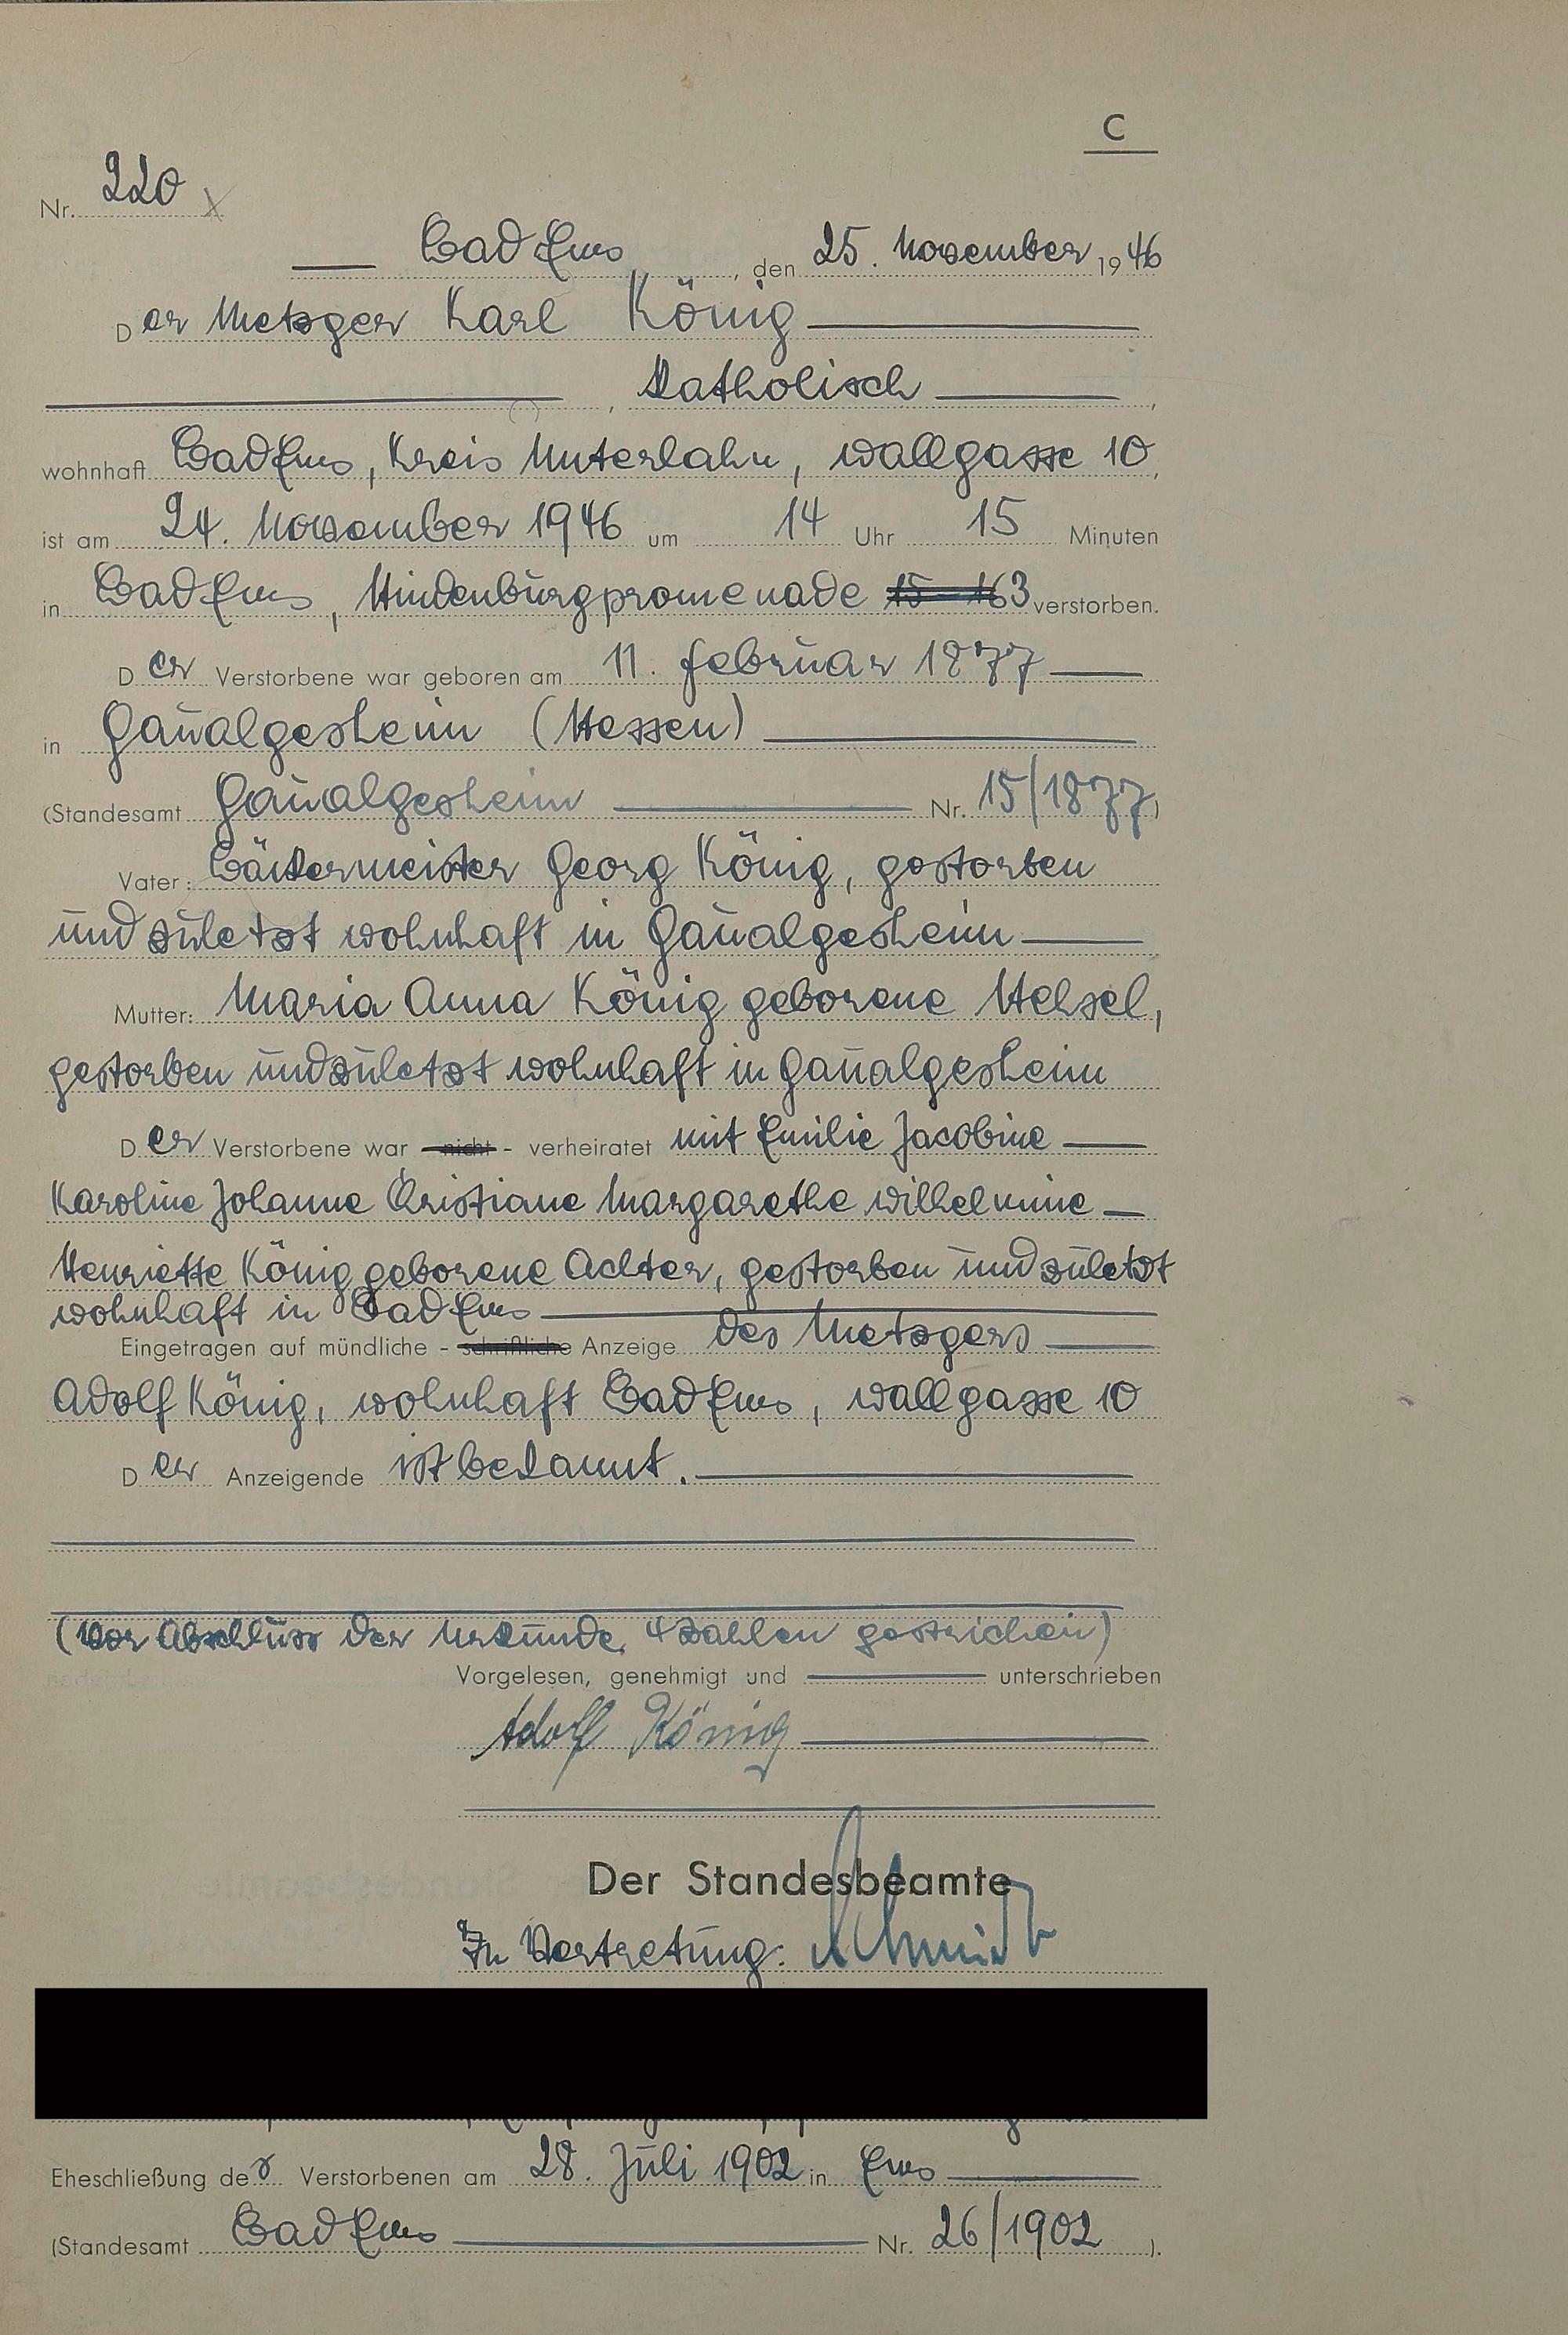 C
Nr. 220
Bad Ems, den 25. November 1946
Der Metzger Karl König
, katholisch,
wohnhaft Bad Ems, Kreis Unterlahn, Wallgasse 10,
ist am 24. November 1946 um 14 Uhr 15 Minuten
in Bad Ems, Hindenburgpromenade 15-16 3 verstorben.
Der Verstorbene war geboren am 11. Februar 1877
in Gaualgesheim (Hessen)
(Standesamt Gaualgesheim Nr. 15/1877)
Vater: Bäckermeister Georg König, gestorben
und zuletzt wohnhaft in Gaualgesheim
Mutter: Maria Anna König geborene Hetzel,
gestorben und zuletzt wohnhaft in Gaualgesheim
Der Verstorbene war - nicht - verheiratet mit Emilie Jacobine
Karoline Johanne Kristiane Margarethe Wilhelmine
Henriette König geborene Achter, gestorben und zuletzt
wohnhaft in Bad Ems
Eingetragen auf mündliche - schriftliche Anzeige des Metzgers
Adolf König, wohnhaft Bad Ems, Wallgasse 10
Der Anzeigende ist bekannt.
(Vor Abschluss der Urkunde 4 Zahlen gestrichen)
Vorgelesen, genehmigt und unterschrieben
Adolf König
Der Standesbeamte
In Vertretung: Schmidt
Eheschließung der Verstorbenen am 28. Juli 1902 in Ems
(Standesamt Bad Ems Nr. 26/1902).